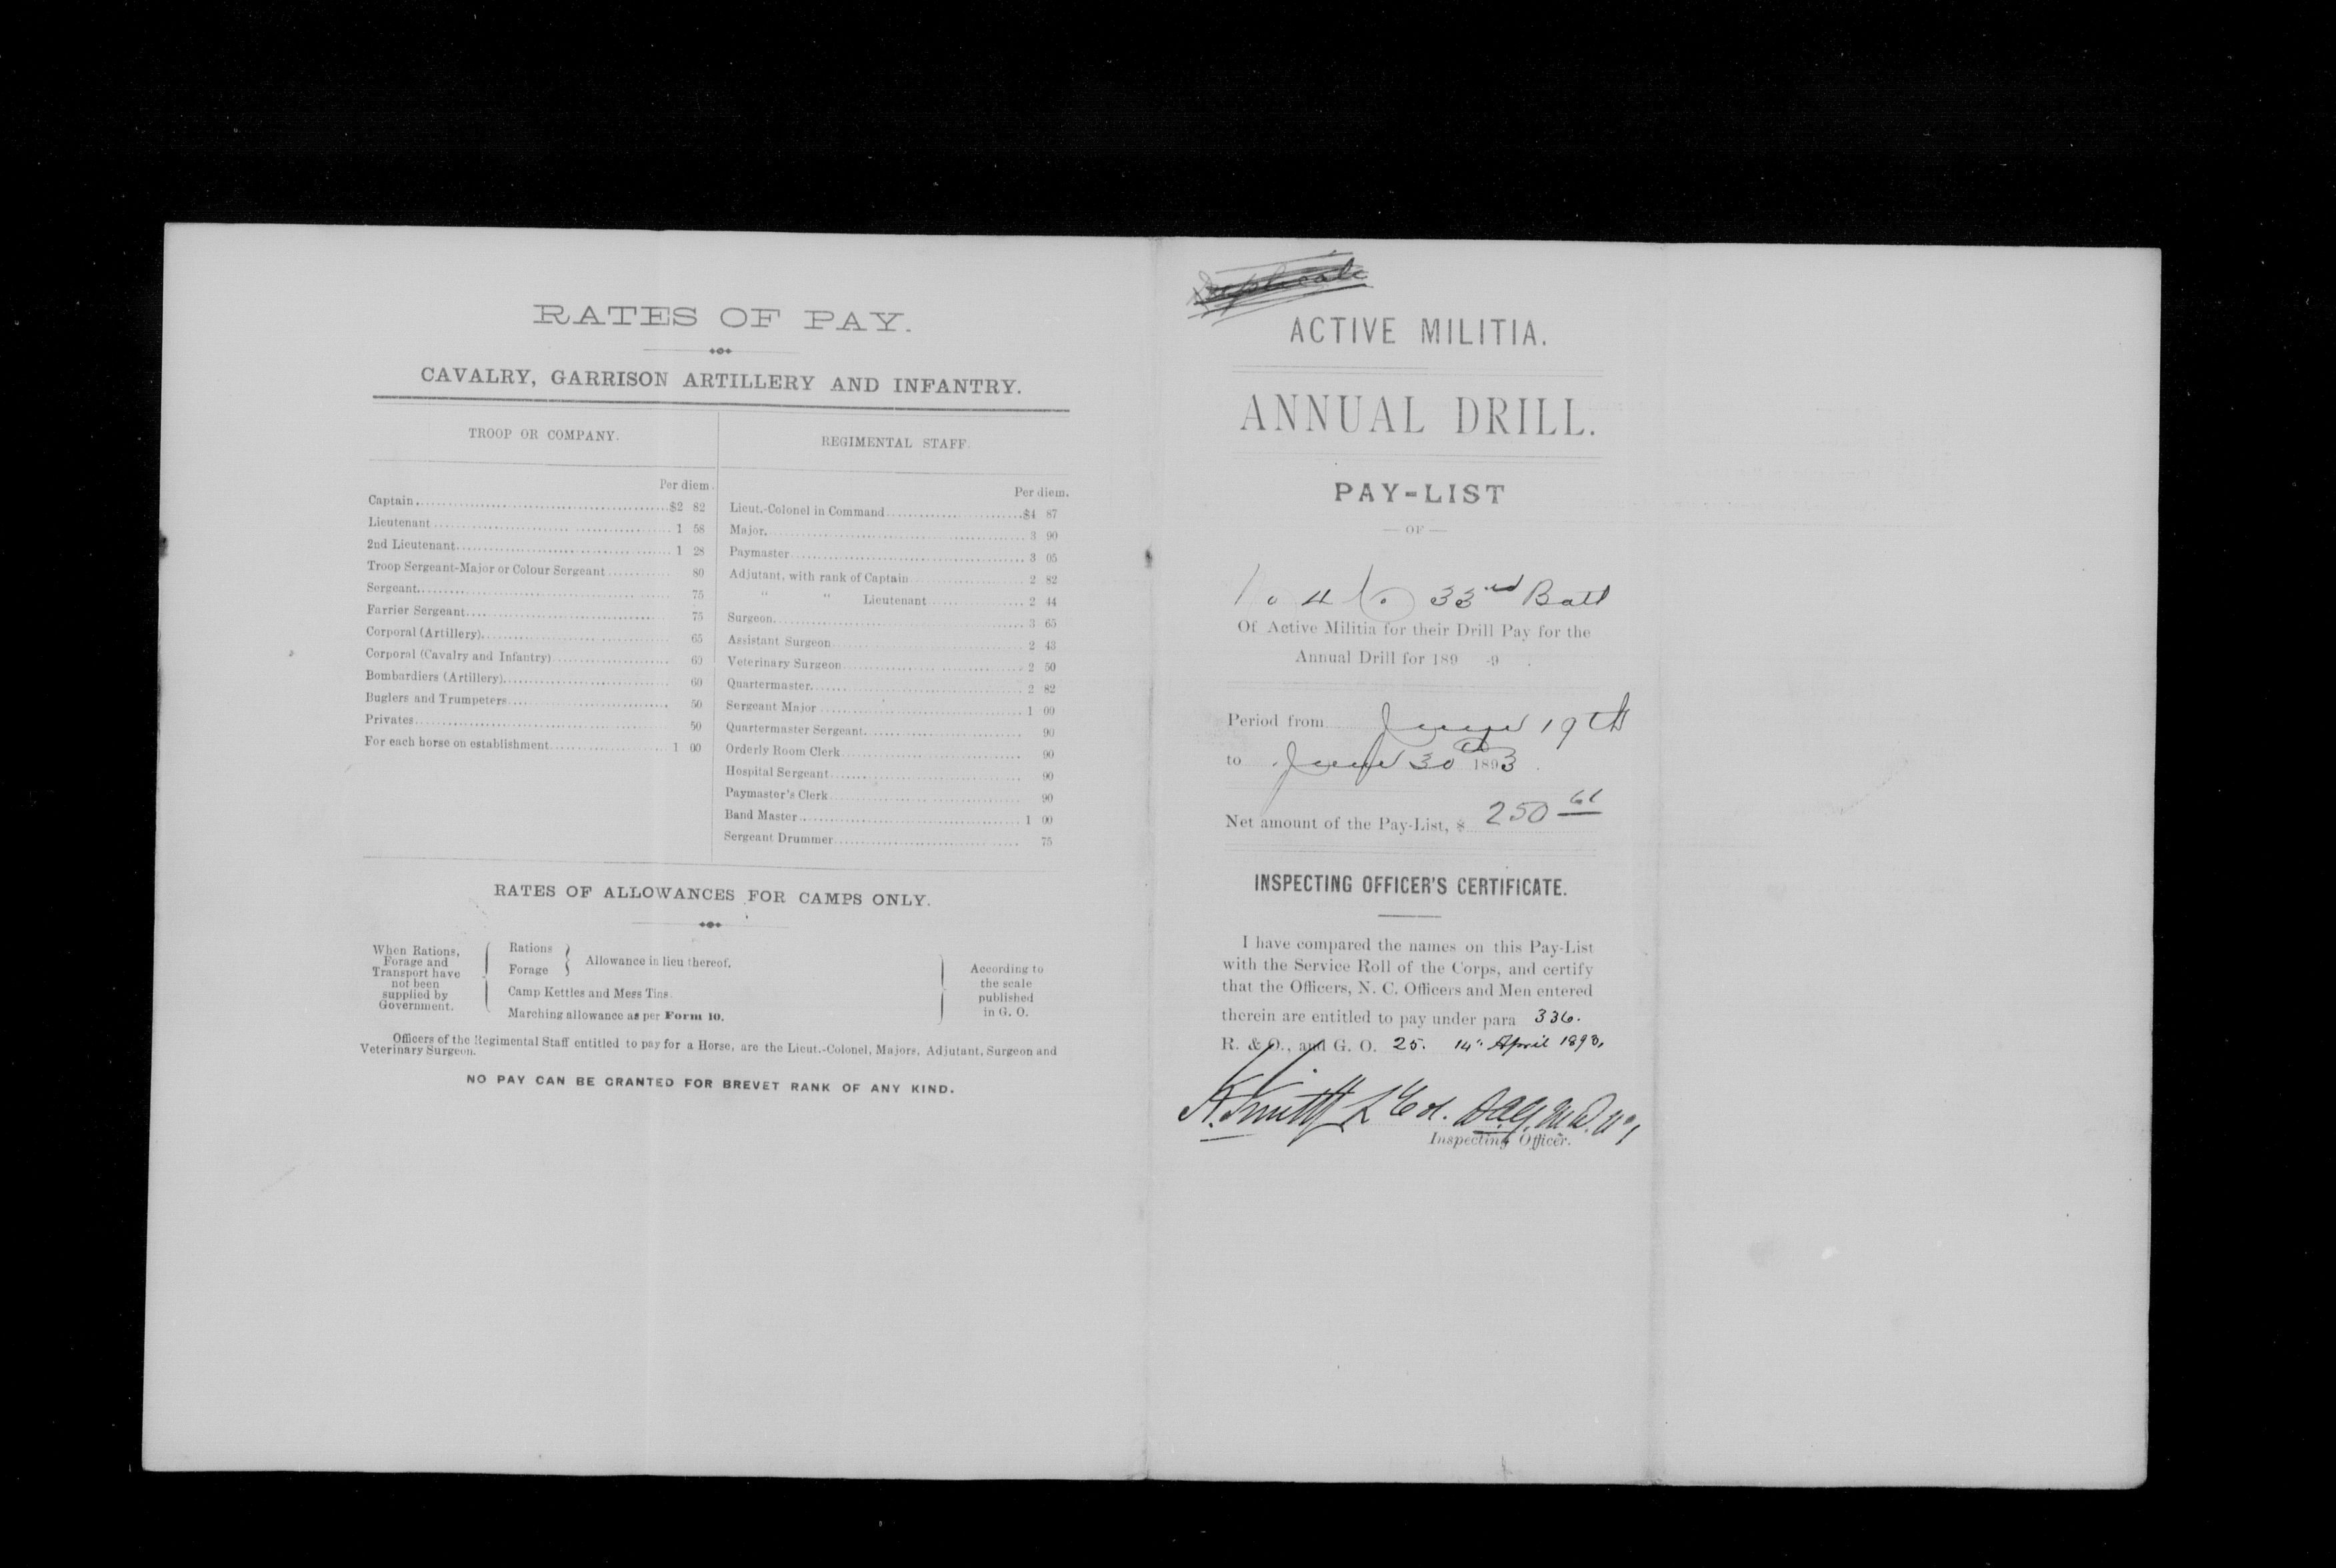 RATES OF PAY.
CAVALRY, GARRISON ARTILLERY AND INFANTRY.
TROOP OR COMPANY.
Per diem.
Captain $2 82
Lieutenant 1 58
2nd Lieutenant 1 28
Troop Sergeant-Major or Colour Sergeant 80
Sergeant 75
Farrier Sergeant 75
Corporal (Artillery) 65
Corporal (Cavalry and Infantry) 60
Bombardiers (Artillery) 60
Buglers and Trumpeters 50
Privates 50
For each horse on establishment 1 00
REGIMENTAL STAFF.
Per diem.
Lieut.-Colonel in Command $4 87
Major 3 90
Paymaster 3 05
Adjutant, with rank of Captain 2 82
" " Lieutenant 2 44
Surgeon 3 65
Assistant Surgeon 2 43
Veterinary Surgeon 2 50
Quartermaster 2 82
Sergeant Major 1 00
Quartermaster Sergeant 90
Orderly Room Clerk 90
Hospital Sergeant 90
Paymaster's Clerk 90
Band Master 1 00
Sergeant Drummer 75
RATES OF ALLOWANCES FOR CAMPS ONLY.
When Rations,
Forage and
Transport have
not been
supplied by
Government.
Rations
Forage
Allowance in lieu thereof.
Camp Kettles and Mess Tins.
Marching allowance as per Form 10.
According to
the scale
published
in G. O.
Officers of the Regimental Staff entitled to pay for a Horse, are the Lieut.-Colonel, Majors, Adjutant, Surgeon and
Veterinary Surgeon.
NO PAY CAN BE GRANTED FOR BREVET RANK OF ANY KIND.
ACTIVE MILITIA.
ANNUAL DRILL.
PAY-LIST
— OF —
No 4 Co 33rd Batt
Of Active Militia for their Drill Pay for the
Annual Drill for 189 -9 .
Period from June 19th
to June 30th 1893
Net amount of the Pay-List, $ 250
INSPECTING OFFICER'S CERTIFICATE.
I have compared the names on this Pay-List
with the Service Roll of the Corps, and certify
that the Officers, N. C. Officers and Men entered
therein are entitled to pay under para 336.
R. & O., and G. O. 25. 14" April 1893,
H. Smith Lt Col. D.A.G. M.D. No 1
Inspecting Officer.